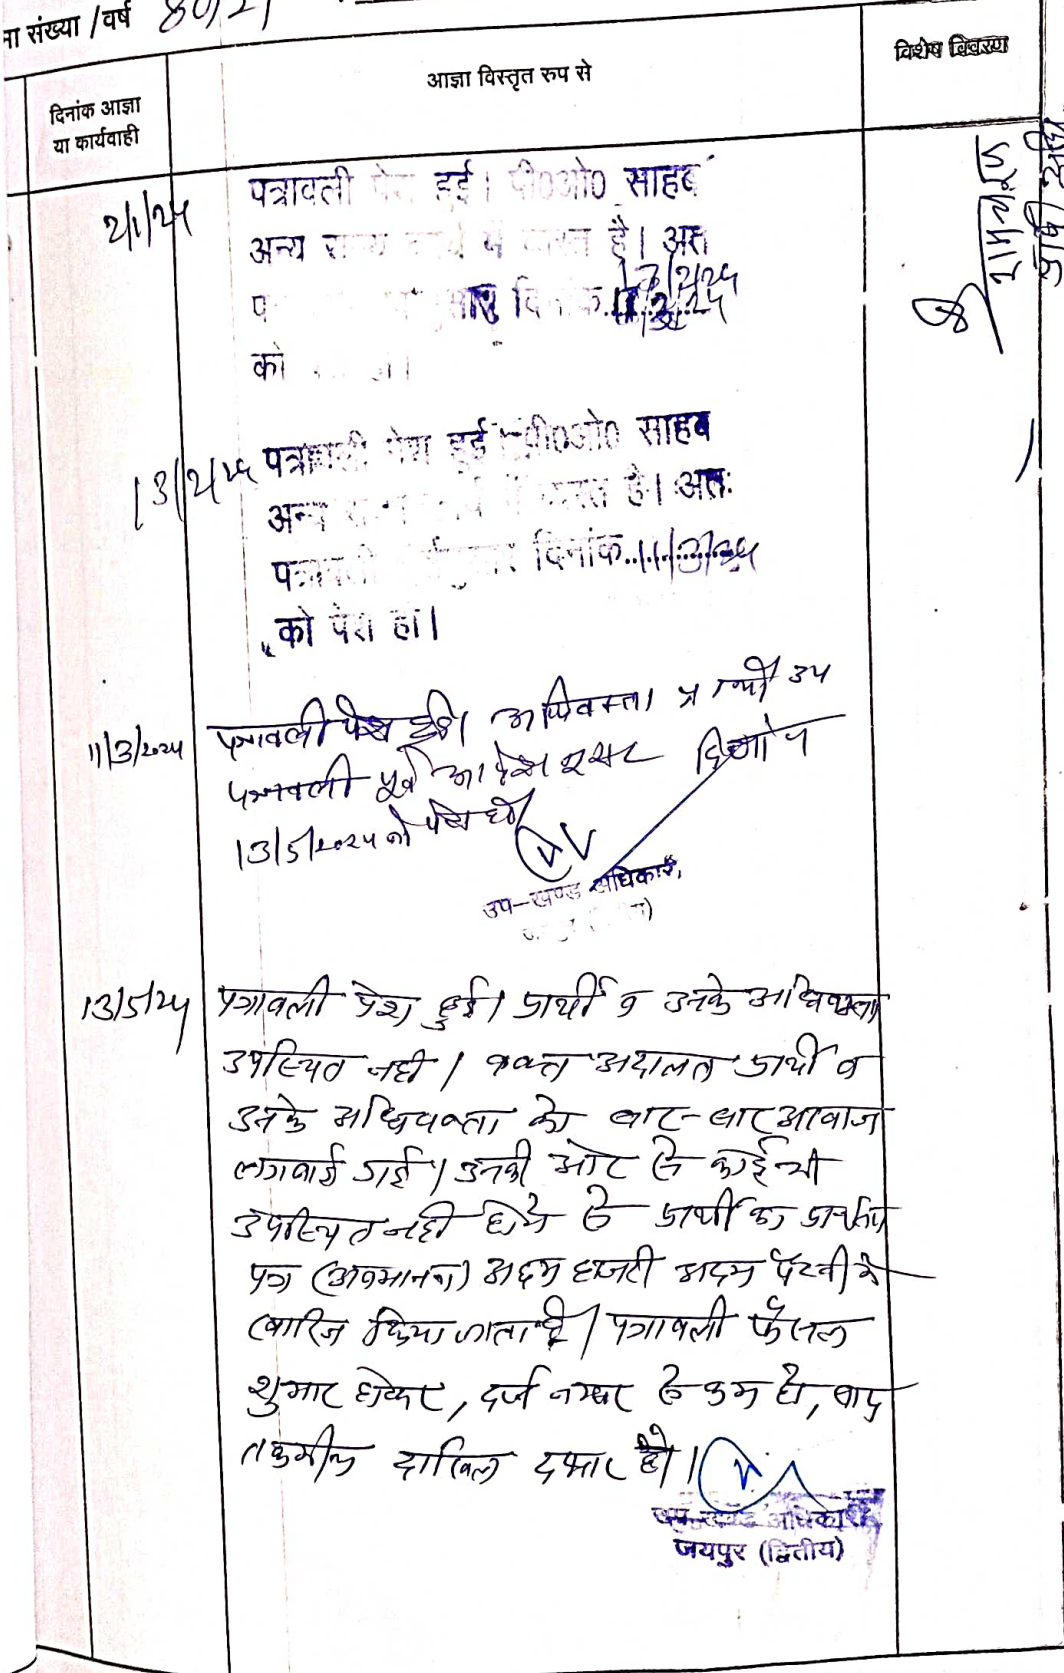 संख्या /वर्ष 80/21
दिनांक आज्ञा
या कार्यवाही
आज्ञा विस्तृत रुप से
विशेष विवरण
2/1/25
पत्रावली पेश हुई। पी०ओ० साहब
अन्य है। अतः
दिनांक 13/2/25
को
13/2/25
पत्रावली पेश हुई। पी०ओ० साहब
अन्य है। अतः
पत्रावली दिनांक..11/3/25
को पेश हो।
11/3/2025
पत्रावली पेश हुई। अधिवक्ता प्रार्थी उप
पत्रावली पूर्व आदेश दिनांक
13/5/2025 को पेश हो
उप-खण्ड अधिकारी,
13/5/25
पत्रावली पेश हुई। प्रार्थी व उनके अधिवक्ता
उपस्थित नही। वक्त अदालत प्रार्थी व
उनके अधिवक्ता को बार-बार आवाज
लगवाई गई। उनकी ओर से कोई भी
उपस्थित नही होने से प्रार्थी का प्रार्थना
पत्र (अवमानना) अदम हाजरी अदम पैरवी मे
खारिज किया जाता है। पत्रावली फैसल
शुमार होकर, दर्ज नम्बर से कम हो, बाद
तकमील दाखिल दफ्तर हो।
उप-खण्ड अधिकारी
जयपुर (द्वितीय)